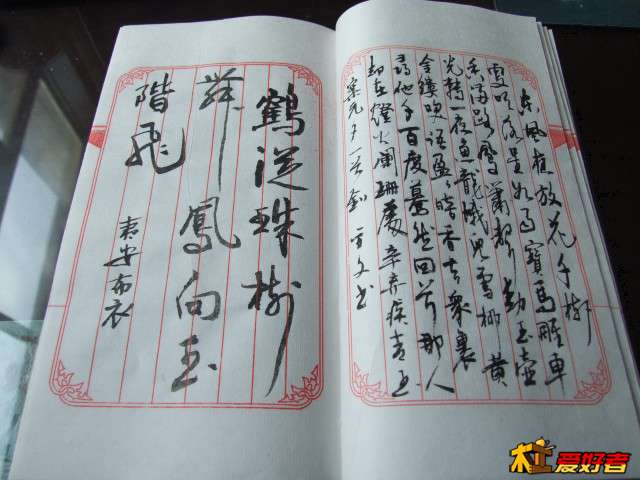 东風夜放花千樹
更吹落星如雨寶馬雕車
香滿路鳳簫聲動玉壺
光转一夜魚龍蛾兒雪柳黄
金縷笑語盈々暗香去眾裏
尋他千百度驀然回首那人
却在燈火闌珊處辛弃疾青玉
案元夕
鶴從珠樹
舞鳳向玉
階飛
袁安布衣
爱好者